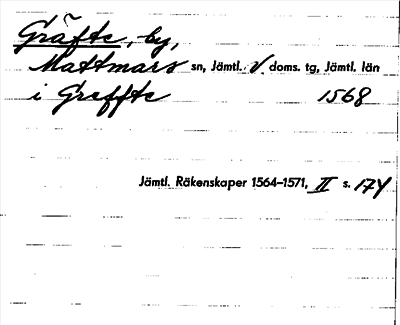 Gräfte, by,
Mattmars sn, Jämtl. V. doms. tg, Jämtl. län
i Greffte 1568
Jämtl. Räkenskaper 1564–1571, II s. 174